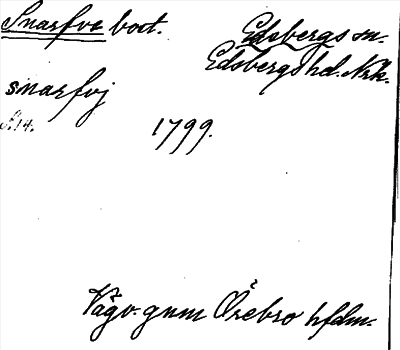 Snarfve bost. Edsbergs sn.
Edsbergs hd. Nrk.
snarfvj
S. 14.
1799.
Vägv. gnm Örebro hfdm.